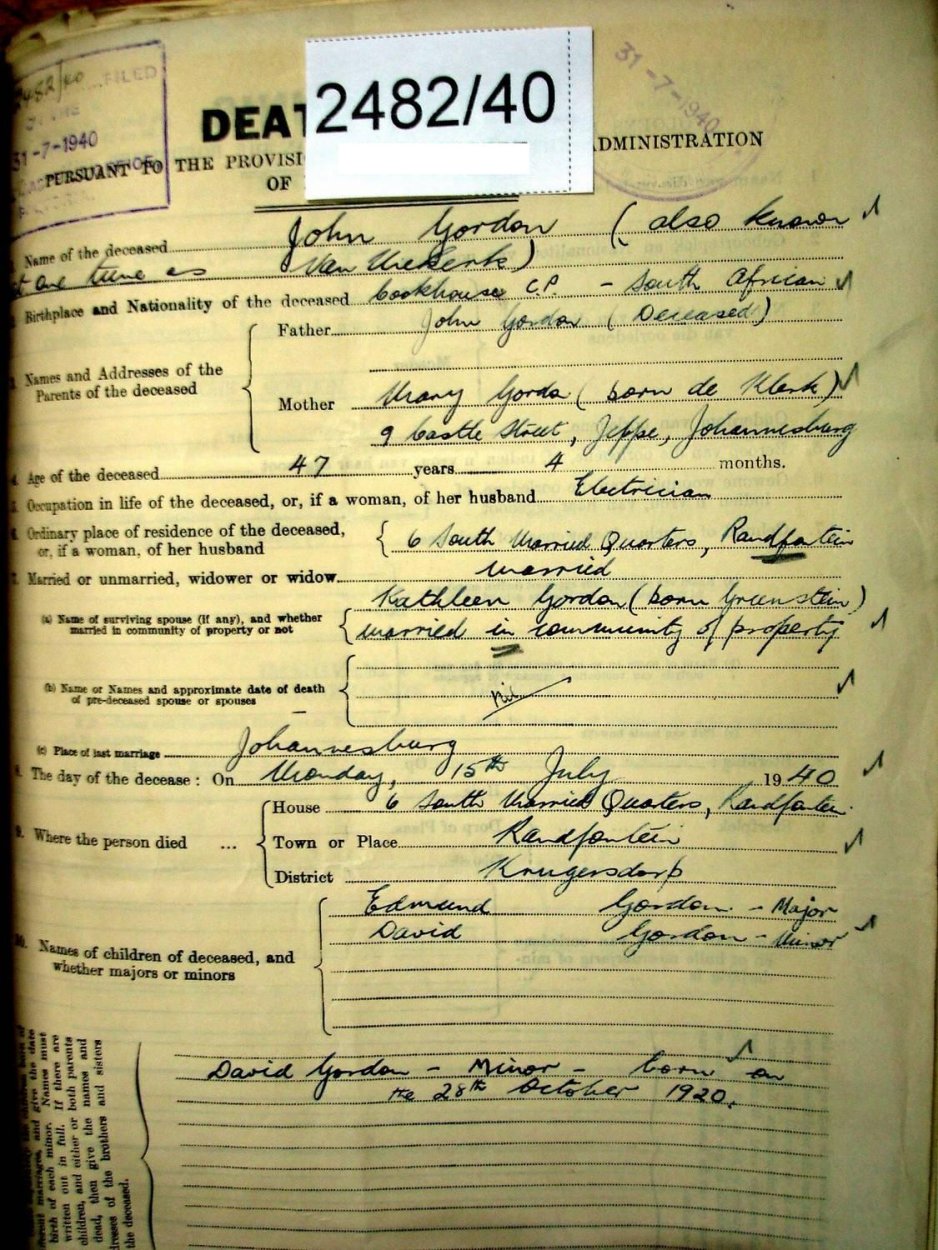 2482/40
FILED
31-7-1940
31-7-1940
DEAT
ADMINISTRATION
PURSUANT TO THE PROVISI
OF
Name of the deceased John Gordon (also known
at one time as Van Niekerk)
Birthplace and Nationality of the deceased Cookhouse C.P. - South African
Father John Gordon (Deceased)
Names and Addresses of the
Parents of the deceased
Mother Mary Gordon (born de Klerk)
9 Castle Street, Jeppe, Johannesburg
4. Age of the deceased 47 years 4 months.
5. Occupation in life of the deceased, or, if a woman, of her husband Electrician
6. Ordinary place of residence of the deceased,
or, if a woman, of her husband 6 South Married Quarters, Randfontein
7. Married or unmarried, widower or widow married
(a) Name of surviving spouse (if any), and whether
married in community of property or not
Kathleen Gordon (born Greenstein)
married in community of property
(b) Name or Names and approximate date of death
of pre-deceased spouse or spouses
nil
(c) Place of last marriage Johannesburg
8. The day of the decease: On Monday, 15th July 1940
House 6 South Married Quarters, Randfontein.
9. Where the person died ... Town or Place Randfontein
District Krugersdorp
Edmund Gordon - Major
David Gordon - Minor
10. Names of children of deceased, and
whether majors or minors
David Gordon - Minor - born on
the 28th October 1920.
and give the date
birth of each minor. Names must
written out in full. If there are
children, and either or both parents
dead, then give the names and
of the brothers and sisters
the deceased.